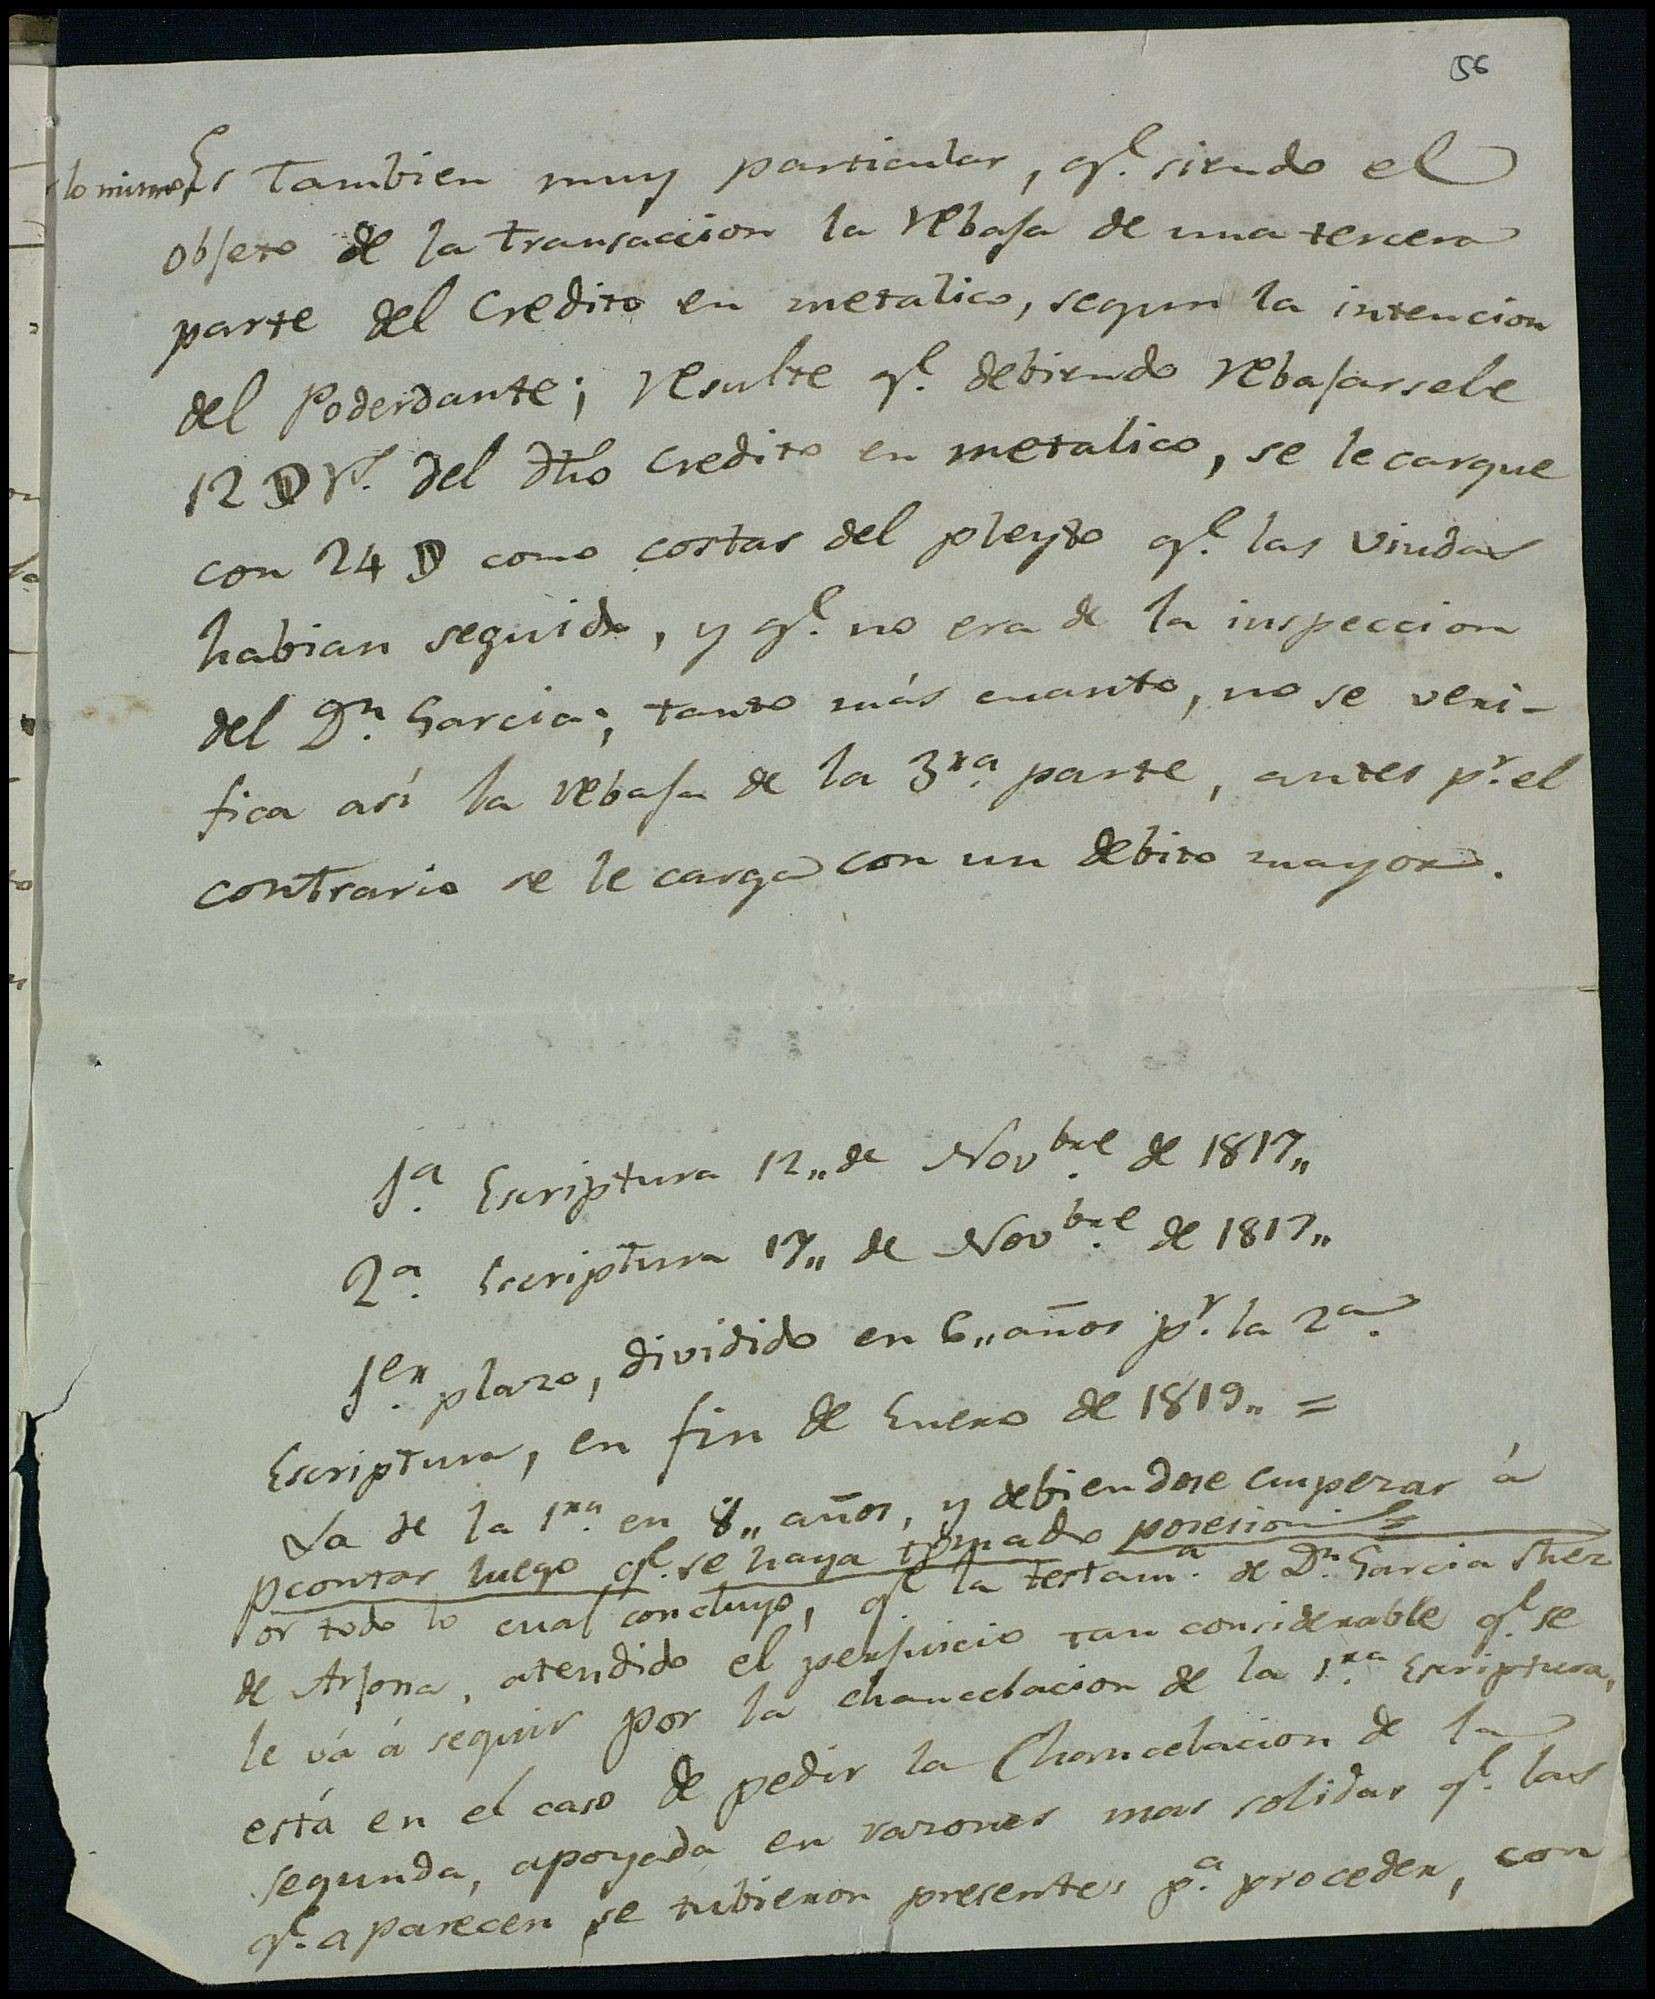 56
lo mismo
Es Tambien muy particular, q.e siendo el
objeto de la transaccion la rebaja de una tercera
parte del Credito en metalico, segun la intencion
del Poderdante; resulte q.e debiendo rebajarsele
12 D r.s del dho credito en metalico, se le cargue
con 24 D como costas del pleyto q.e las viudas
habian seguido, y q.e no era de la inspeccion
del D.n Garcia; tanto más cuanto, no se veri-
fica así la rebaja de la 3.ra parte, antes p.r el
contrario se le carga con un debito mayor.
1.a Escriptura 12,, de Nov.bre de 1817,,
2.a Escriptura 17,, de Nov.bre de 1817,,
1.er plazo, dividido en 6,, años p.r la 2.a
Escriptura, en fin de Enero de 1819,, =
La de la 1.ra en 8,, años, y debiendose empezar á
contar luego q.e se haya tomado posesion
Por todo lo cual concluyo, q.e la testam.a de D.n Garcia Shez
de Arjona, atendido el perjuicio tan considerable q.e se
le vá á seguir por la chancelacion de la 1.ra Escriptura,
está en el caso de pedir la Chancelacion de la
segunda, apoyada en razones mas solidas q.e las
q.e aparecen se tubieron presentes p.a proceder, con